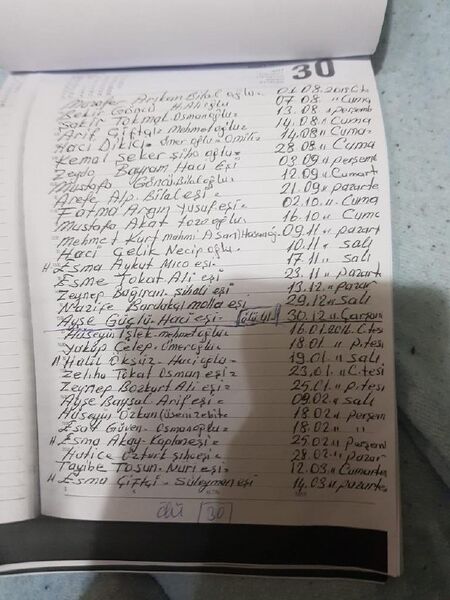 30
Muzafer Arıkan Bilal oğlu= 01.08.2015 C.te
Bekir Göncü H Ali oğlu 07 08 " Cuma
Şakir Tokmak Osmanoğlu= 13.08 " perşemb
Arif Çiftçi= Mehmetoğlu= 14.08 " Cuma
Haci Dikici Ömer oğlu= 14.08 " Cuma
Kemal Şeker Şıho oğlu= 28 08 " Cuma
Zeyde Bayram Haci Eşi 03 09 " perşemb
Mustafa Göncü Bilaloğlu 12.09 " Cumart
Arefe Alp. Bilal eşi= 21.09 " pazarte
Fatma Argın Yusuf eşi= 02.10 " Cuma
Mustafa Akat oğlu= 16.10 " Cuma
Mehmet Kurt 09.11 " pazart
Haci Çelik Necip oğlu= 10.11 " Salı
" Esma Aykut Mıco eşi= 17.11 " Salı
Esme Tokat Ali eşi= 23.11 " pazart
Zeynep Bağıran Şıhali eşi 13.12 " pazar
Nazife Bardakçı molla eşi 29.12 " Salı
Ayşe Güçlü Haci eşi- 30.12 " Çarşam
Hüseyin İşlek mehmetoğlu= 16.01.2016 C.tesi
Yakup Çelep-Ömeroğlu= 18.01 " p.tesi
" Halil Öksüz-Hacioğlu= 19.01 " Salı
Zeliha Tokat Osman eşi= 23.01 " C.tesi
Zeynep Bozkurt Ali eşi= 25.01 " p.tesi
Ayşe Baysal Arif eşi= 09.02 " Salı
Hüseyin Özkan 18.02 " perşem
Esat Güven- Osmanoğlu= 18.02 " "
" Esma Akay- Kaplan eşi= 25.02 " perşemb
Hatice Öztürk eşi= 28.02 " pazar
Tayibe Tosun-Nuri eşi= 12.03 " Cumartes
" Esma Çiftçi - Süleyman eşi 14.03 " pazartes
ölü 30